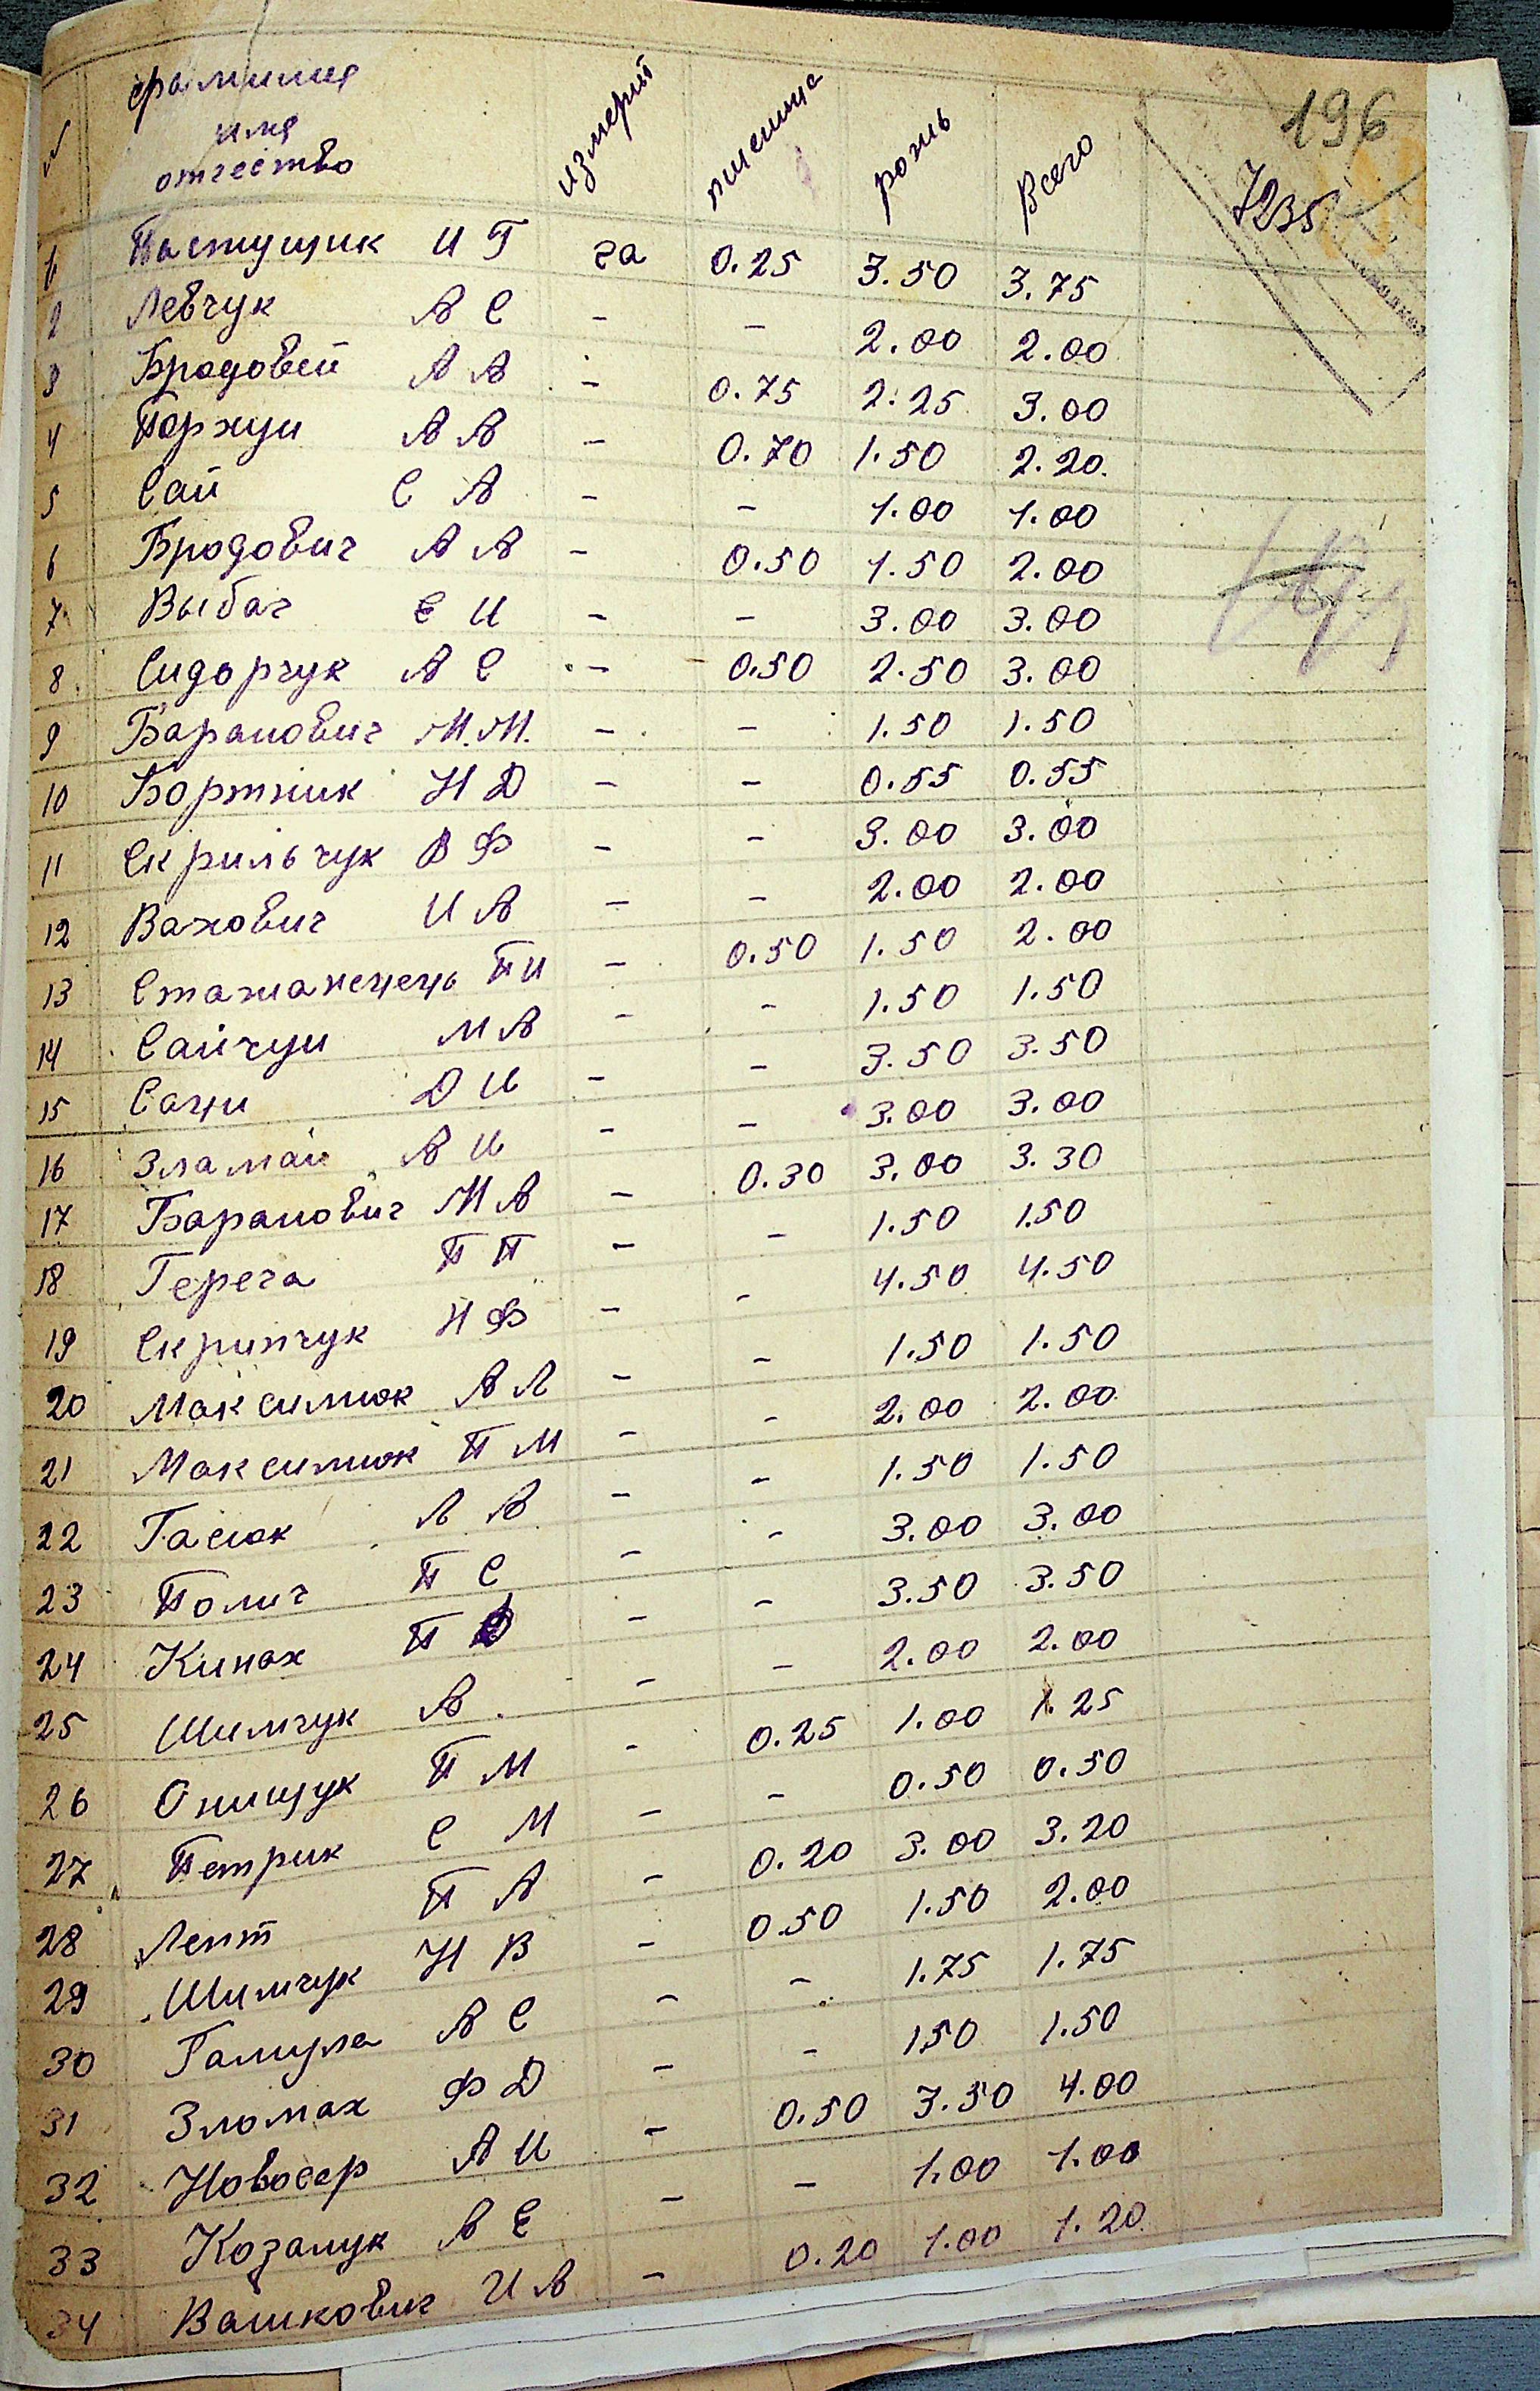 196
7235
№ фамилия имя отчество измерит пшеница рожь Всего
1 Пастущик И Г га 0.25 3.50 3.75
2 Левчук А С - - 2.00 2.00
3 Бродовей А А - 0.75 2.25 3.00
4 Торжуи А А - 0.70 1.50 2.20.
5 Сай С А - - 1.00 1.00
6 Бродович А А - 0.50 1.50 2.00
7 Выбач Е И - - 3.00 3.00
8 Сидорчук А С - 0.50 2.50 3.00
9 Баранович М.М. - - 1.50 1.50
10 Бортник Н Д - - 0.55 0.55
11 Скрильчук В Ф - - 3.00 3.00
12 Вахович И А - - 2.00 2.00
13 П И - 0.50 1.50 2.00
14 Сайчуи М А - - 1.50 1.50
15 Сачи Д И - - 3.50 3.50
16 Зламай А И - - 3.00 3.00
17 Баранович М А - 0.30 3.00 3.30
18 Герега П П - - 1.50 1.50
19 Скрипчук Н Ф - - 4.50 4.50
20 Максимюк А Л - - 1.50 1.50
21 Максимюк П М - - 2.00 2.00
22 Гасюк Л А - - 1.50 1.50
23 Полич П С - - 3.00 3.00
24 Кинах П - - 3.50 3.50
25 Шимчук А. - - 2.00 2.00
26 Онищук П М - 0.25 1.00 1.25
27 Петрик С М - - 0.50 0.50
28 Лепт П А - 0.20 3.00 3.20
29 Шимчук Н В - 0.50 1.50 2.00
30 Гамула А С - - 1.75 1.75
31 Зломах Ф Д - - 150 1.50
32 Новосер А И - 0.50 3.50 4.00
33 Козачук А Е - - 1.00 1.00
34 Вашкович И А - 0.20 1.00 1.20